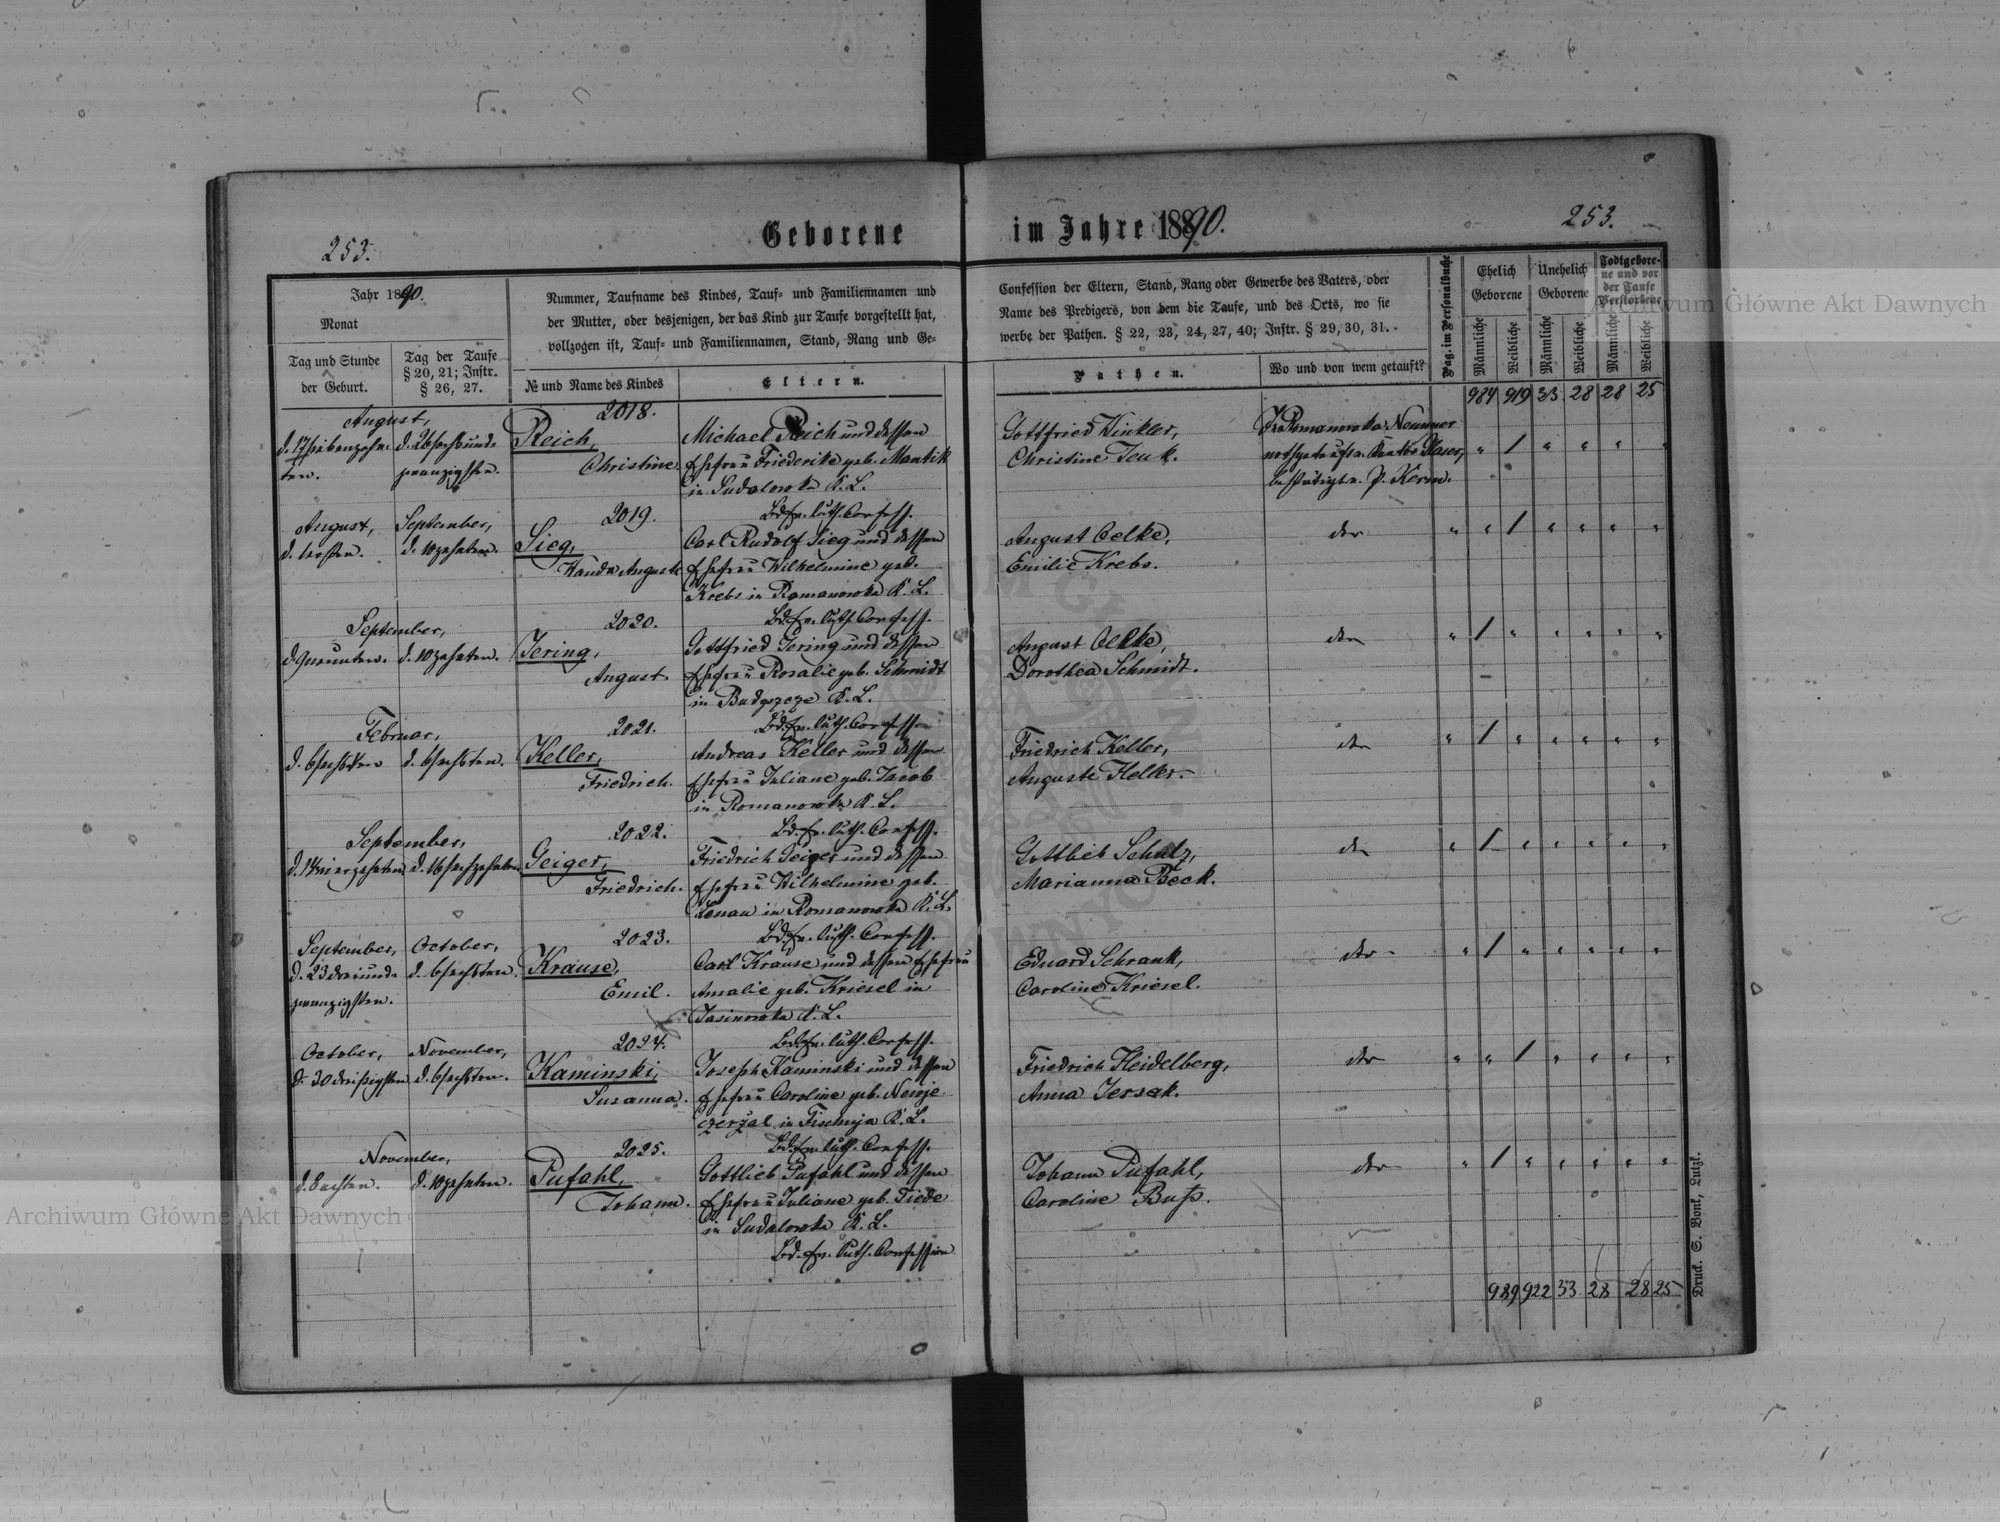 253.
Geborene
im Jahre 1890.
253.
Jahr 1890.
Monat
Tag und Stunde
der Geburt.
Tag der Taufe
§ 20, 21; Instr.
§ 26, 27.
Nummer, Taufname des Kindes, Tauf- und Familiennamen und
der Mutter, oder desjenigen, der das Kind zur Taufe vorgestellt hat,
vollzogen ist, Tauf- und Familiennamen, Stand, Rang und Ge-
№ und Name des Kindes
Eltern.
Confession der Eltern, Stand, Rang oder Gewerbe des Vaters, oder
Name des Predigers, von dem die Taufe, und des Orts, wo sie
werbe der Pathen. § 22, 23, 24, 27, 40; Instr. § 29, 30, 31.
Pathen.
Wo und von wem getauft?
Pag. im Personalbuche
Ehelich
Geborene
Unehelich
Geborene
Todtgebore-
ne und vor
der Taufe
Verstorbene
Männliche
Weibliche
Männliche
Weibliche
Männliche
Weibliche
984 919 33 28 28 25
August,
d. 17 siebenzehn-
ten.
d. 26 sechsund-
zwanzigsten.
2018.
Reich,
Christine.
Michael Reich und dessen
Ehefrau Friederike geb. Mantik
in Sudalowka K. L.
Bd. ev. luth. Confess.
Gottfried Winkler,
Christine Jeuk.
In Romanowka Neumer
notgetauft v. Kantor Glaser,
bestätigt v. P. Kerm.
" / " " " "
August,
d. ersten.
September,
d. 10 zehnten.
2019.
Sieg,
Wanda Auguste
Carl Rudolf Sieg und dessen
Ehefrau Wilhelmine geb.
Krebs in Romanowka K. L.
Bd. ev. luth. Confess.
August Oelke,
Emilie Krebs.
dto
" " / " " " "
September,
d. 9 neunten.
d. 10 zehnten.
2020.
Jering,
August.
Gottfried Jering und dessen
Ehefrau Rosalie geb. Schmidt
in Budyszcze K. L.
Bd. ev. luth. Confess.
August Oelke,
Dorothea Schmidt.
dto
" / " " " " "
Februar,
d. 6 sechsten
d. 6 sechsten.
2021.
Keller,
Friedrich.
Andreas Keller und dessen
Ehefrau Juliane geb. Jacob
in Romanowka K. L.
Bd. ev. luth. Confess.
Friedrich Keller,
Auguste Keller.
dto
" / " " " " "
September,
d. 14 vierzehnten
d. 16 sechzehnten.
2022.
Geiger,
Friedrich.
Friedrich Geiger und dessen
Ehefrau Wilhelmine geb.
Lenau in Romanowka K. L.
Bd. ev. luth. Confess.
Gottlieb Schulz,
Marianna Beck.
dto
" / " " " " "
September,
d. 23 dreiund-
zwanzigsten.
October,
d. 6 sechsten.
2023.
Krause,
Emil.
Carl Krause und dessen Ehefrau
Amalie geb. Kriesel in
Jasinowka K. L.
Bd. ev. luth. Confess.
Eduard Schrank,
Caroline Kriesel.
dto
" / " " " " "
October,
d. 30 dreißigsten
November,
d. 6 sechsten.
2024.
Kaminski,
Susanna.
Joseph Kaminski und dessen
Ehefrau Caroline geb. Newje-
czerzal in K. L.
Bd. ev. luth. Confess.
Friedrich Heidelberg,
Anna Jersak.
dto
" " / " " " "
November,
d. 8 achten.
d. 10 zehnten.
2025.
Pufahl,
Johann.
Gottlieb Pufahl und dessen
Ehefrau Juliane geb. Tiede
in Sudalowka K. L.
Bd. ev. Luth. Confession
Johann Pufahl,
Caroline Buß.
dto
" / " " " " "
989 922 33 28 28 25
Druck. S. Bonk, Lutzk.
Archiwum Główne Akt Dawnych
Archiwum Główne Akt Dawnych